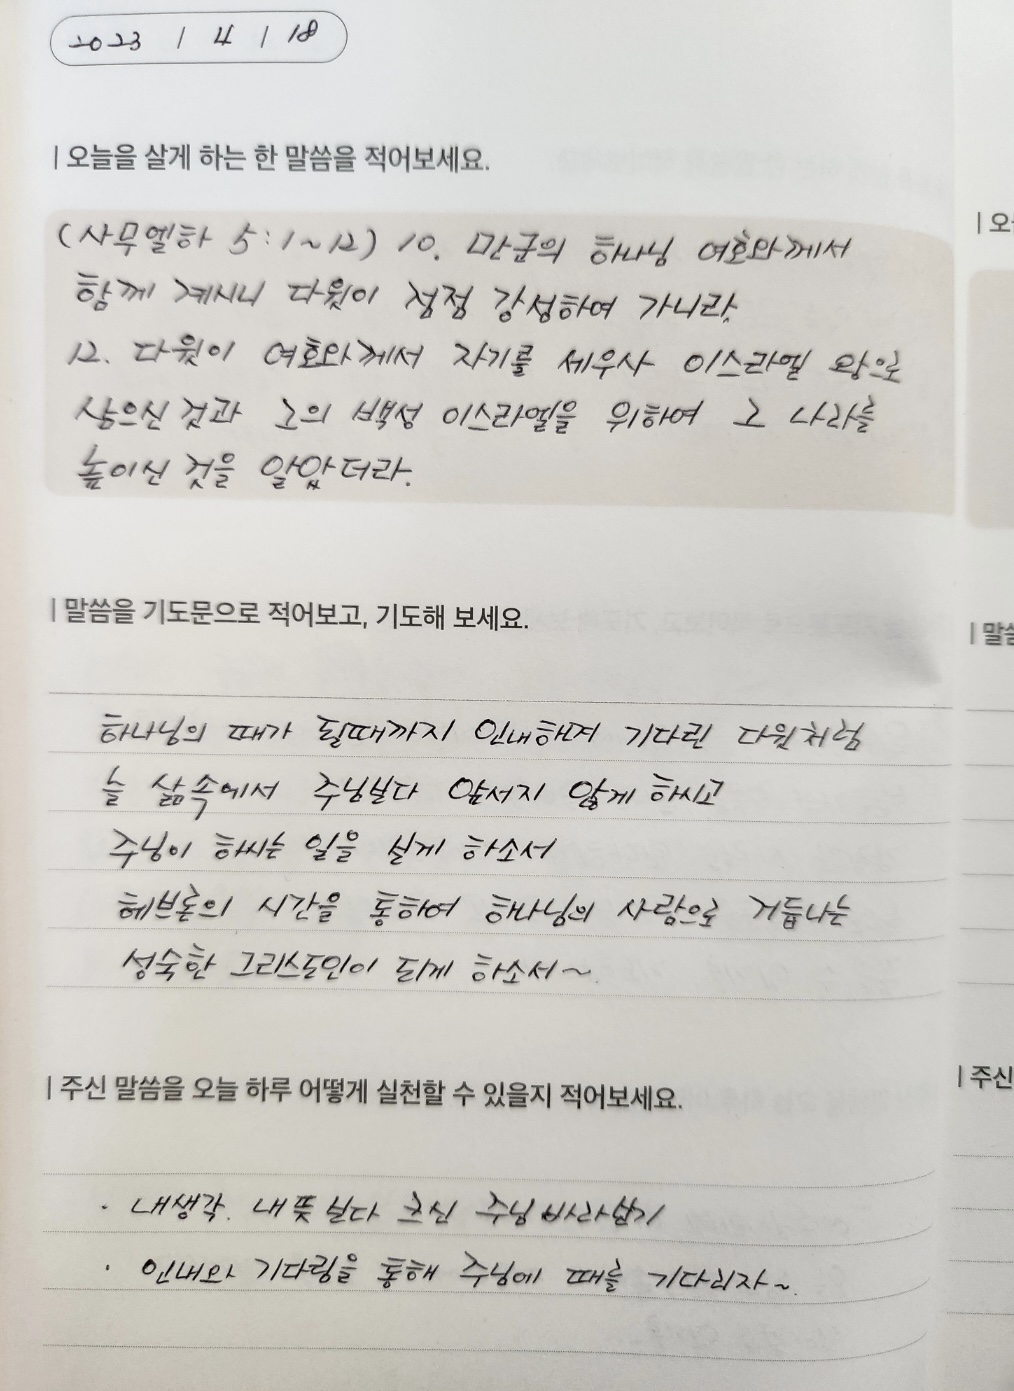 2023 / 4 / 18
| 오늘을 살게 하는 한 말씀을 적어보세요.
(사무엘하 5:1~12) 10. 만군의 하나님 여호와께서
함께 계시니 다윗이 점점 강성하여 가니라.
12. 다윗이 여호와께서 자기를 세우사 이스라엘 왕으로
삼으신 것과 그의 백성 이스라엘을 위하여 그 나라를
높이신 것을 알았더라.
| 말씀을 기도문으로 적어보고, 기도해 보세요.
하나님의 때가 될때까지 인내하며 기다린 다윗처럼
늘 삶속에서 주님보다 앞서지 않게 하시고
주님이 하시는 일을 보게 하소서
헤브론의 시간을 통하여 하나님의 사람으로 거듭나는
성숙한 그리스도인이 되게 하소서~
| 주신 말씀을 오늘 하루 어떻게 실천할 수 있을지 적어보세요.
· 내생각. 내 뜻 보다 크신 주님 바라보기
· 인내와 기다림을 통해 주님에 때를 기다리자~.
| 오
| 말씀
| 주신